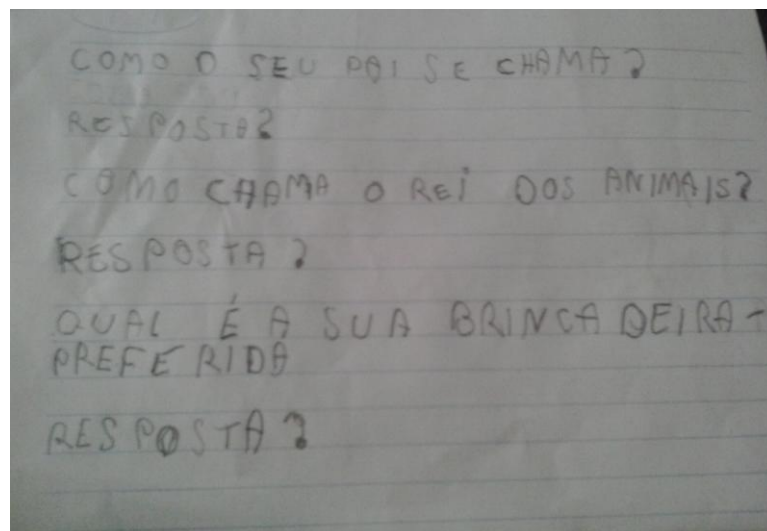 COMO O SEU PAI SE CHAMA?
RESPOSTA?
COMO CHAMA O REI DOS ANIMAIS?
RESPOSTA?
QUAL É A SUA BRINCADEIRA-
PREFERIDA
RESPOSTA?